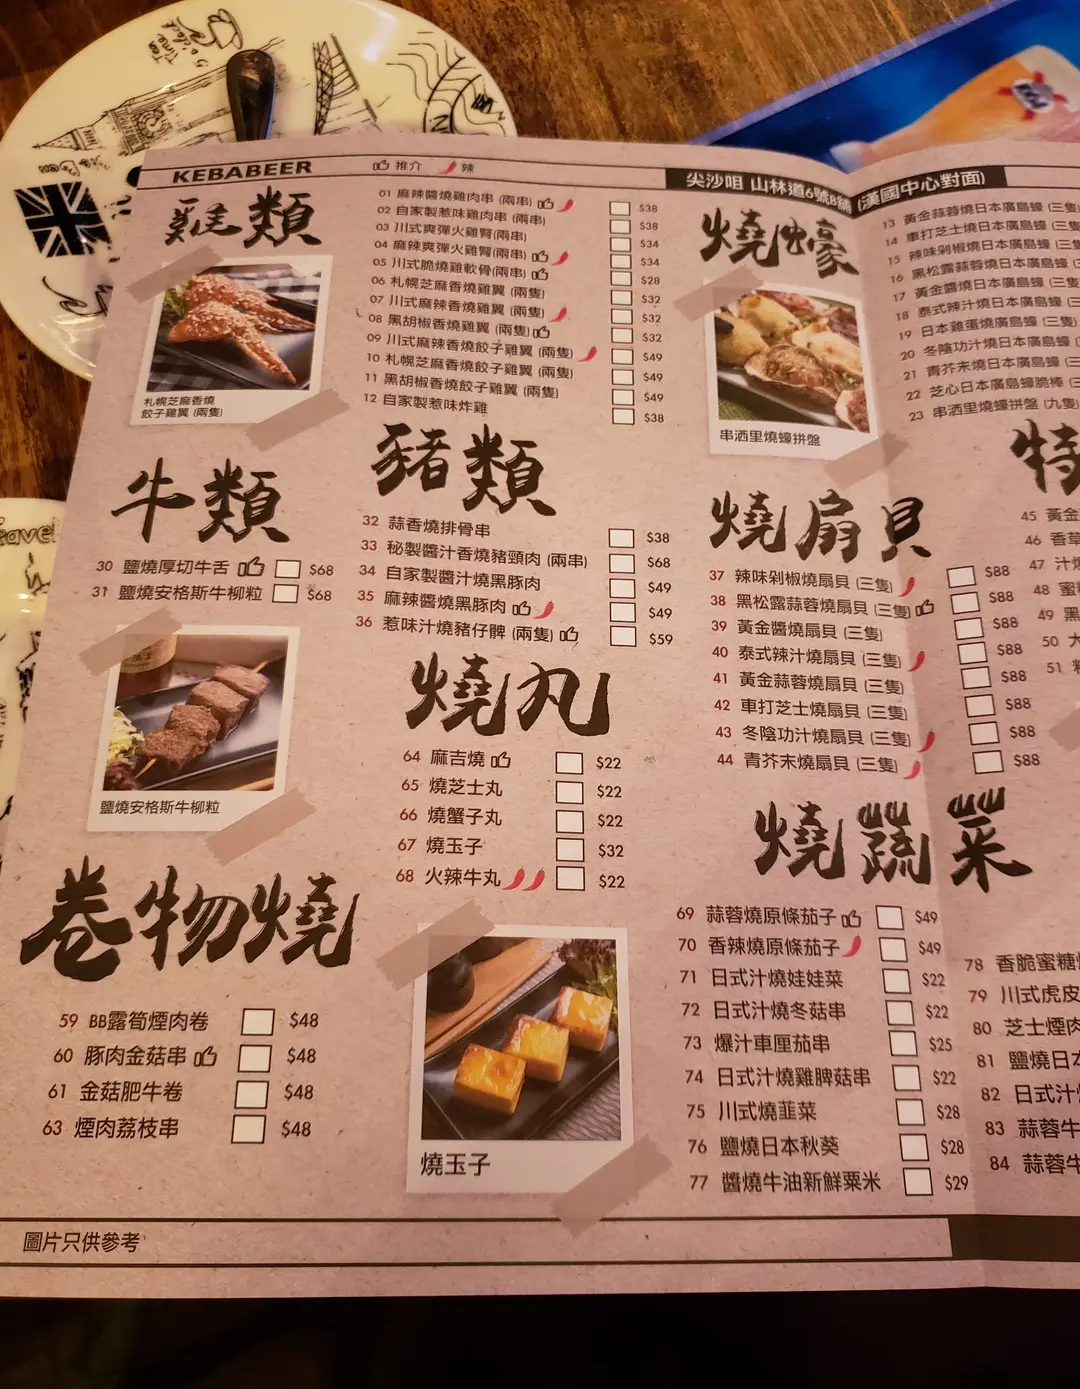 Tea
Time
5 o'clock
KEBABEER
推介
辣
尖沙咀 山林道6號8舖 (漢國中心對面)
雞類
01 麻辣醬燒雞肉串 (兩串) $38
02 自家製惹味雞肉串 (兩串) $38
03 川式爽彈火雞腎(兩串) $34
04 麻辣爽彈火雞腎(兩串) $34
05 川式脆燒雞軟骨(兩串) $28
06 札幌芝麻香燒雞翼 (兩隻) $32
07 川式麻辣香燒雞翼 (兩隻) $32
08 黑胡椒香燒雞翼 (兩隻) $32
09 川式麻辣香燒餃子雞翼 (兩隻) $49
10 札幌芝麻香燒餃子雞翼 (兩隻) $49
11 黑胡椒香燒餃子雞翼 (兩隻) $49
12 自家製惹味炸雞 $38
札幌芝麻香燒
餃子雞翼 (兩隻)
牛類
30 鹽燒厚切牛舌 $68
31 鹽燒安格斯牛柳粒 $68
鹽燒安格斯牛柳粒
卷物燒
59 BB露筍煙肉卷 $48
60 豚肉金菇串 $48
61 金菇肥牛卷 $48
63 煙肉荔枝串 $48
豬類
32 蒜香燒排骨串 $38
33 秘製醬汁香燒豬頸肉 (兩串) $68
34 自家製醬汁燒黑豚肉 $49
35 麻辣醬燒黑豚肉 $49
36 惹味汁燒豬仔髀 (兩隻) $59
燒丸
64 麻吉燒 $22
65 燒芝士丸 $22
66 燒蟹子丸 $22
67 燒玉子 $32
68 火辣牛丸 $22
燒玉子
燒蠔
串洒里燒蠔拼盤
13 黃金蒜蓉燒日本廣島蠔 (三隻
14 車打芝士燒日本廣島蠔 (三隻
15 辣味剁椒燒日本廣島蠔 (三隻
16 黑松露蒜蓉燒日本廣島蠔
17 黃金醬燒日本廣島蠔 (三隻
18 泰式辣汁燒日本廣島蠔 (三
19 日本雞蛋燒廣島蠔 (三隻)
20 冬陰功汁燒日本廣島蠔
21 青芥末燒日本廣島蠔 (三
22 芝心日本廣島蠔脆棒 (三
23 串洒里燒蠔拼盤 (九隻)
燒扇貝
37 辣味剁椒燒扇貝 (三隻) $88
38 黑松露蒜蓉燒扇貝 (三隻) $88
39 黃金醬燒扇貝 (三隻) $88
40 泰式辣汁燒扇貝 (三隻) $88
41 黃金蒜蓉燒扇貝 (三隻) $88
42 車打芝士燒扇貝 (三隻) $88
43 冬陰功汁燒扇貝 (三隻) $88
44 青芥末燒扇貝 (三隻) $88
特
45 黃金
46 香草
47 汁燒
48 蜜
49 黑
50 大
51
燒蔬菜
69 蒜蓉燒原條茄子 $49
70 香辣燒原條茄子 $49
71 日式汁燒娃娃菜 $22
72 日式汁燒冬菇串 $22
73 爆汁車厘茄串 $25
74 日式汁燒雞脾菇串 $22
75 川式燒韮菜 $28
76 鹽燒日本秋葵 $28
77 醬燒牛油新鮮粟米 $29
78 香脆蜜糖
79 川式虎皮
80 芝士煙肉
81 鹽燒日本
82 日式汁
83 蒜蓉牛
84 蒜蓉牛
圖片只供參考